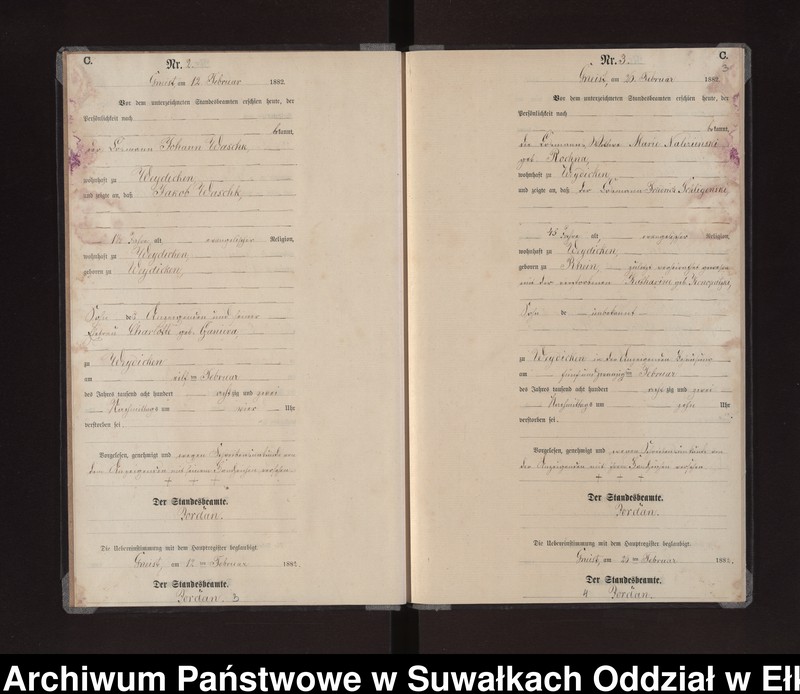 C.
Nr. 2.
am 12 Februar 1882.
Vor dem unterzeichneten Standesbeamten erschien heute, der
Persönlichkeit nach
bekannt,
der Losmann Johann
wohnhaft zu Weydicken,
und zeigte an, daß Jakob
alt evangelischer Religion,
wohnhaft zu Weydicken,
geboren zu Weydicken,
Sohn des Anzeigenden und seiner
Ehefrau Charlotte geb.
zu Weydicken
am elften Februar
des Jahres tausend acht hundert achtzig und zwei
Nachmittags um vier Uhr
verstorben sei.
Vorgelesen, genehmigt und wegen Schreibensunkunde von
dem Anzeigenden mit seinem Handzeichen versehen
+ + +
Der Standesbeamte.
Jordan.
Die Uebereinstimmung mit dem Hauptregister beglaubigt.
am 12 ten Februar 1882
Der Standesbeamte.
Jordan. 3
C.
3
Nr. 3.
am Februar 1882.
Vor dem unterzeichneten Standesbeamten erschien heute, der
Persönlichkeit nach
bekannt,
die Losmann Wittwe Marie
geb.
wohnhaft zu Weydicken,
und zeigte an, daß der Losmann
45 Jahre alt evangelischer Religion,
wohnhaft zu Weydicken,
geboren zu Rhein, zuletzt verheirathet gewesen
mit der verstorbenen Katharine geb.
Sohn de unbekannt
zu Weydicken in der Anzeigenden
am fünfundzwanzigsten Februar
des Jahres tausend acht hundert achtzig und zwei
Nachmittags um zehn Uhr
verstorben sei.
Vorgelesen, genehmigt und wegen Schreibensunkunde von
der Anzeigenden mit ihrem Handzeichen versehen
+ + +
Der Standesbeamte.
Jordan.
Die Uebereinstimmung mit dem Hauptregister beglaubigt.
am Februar 1882.
Der Standesbeamte.
4 Jordan.
Archiwum Państwowe w Suwałkach Oddział w Eł